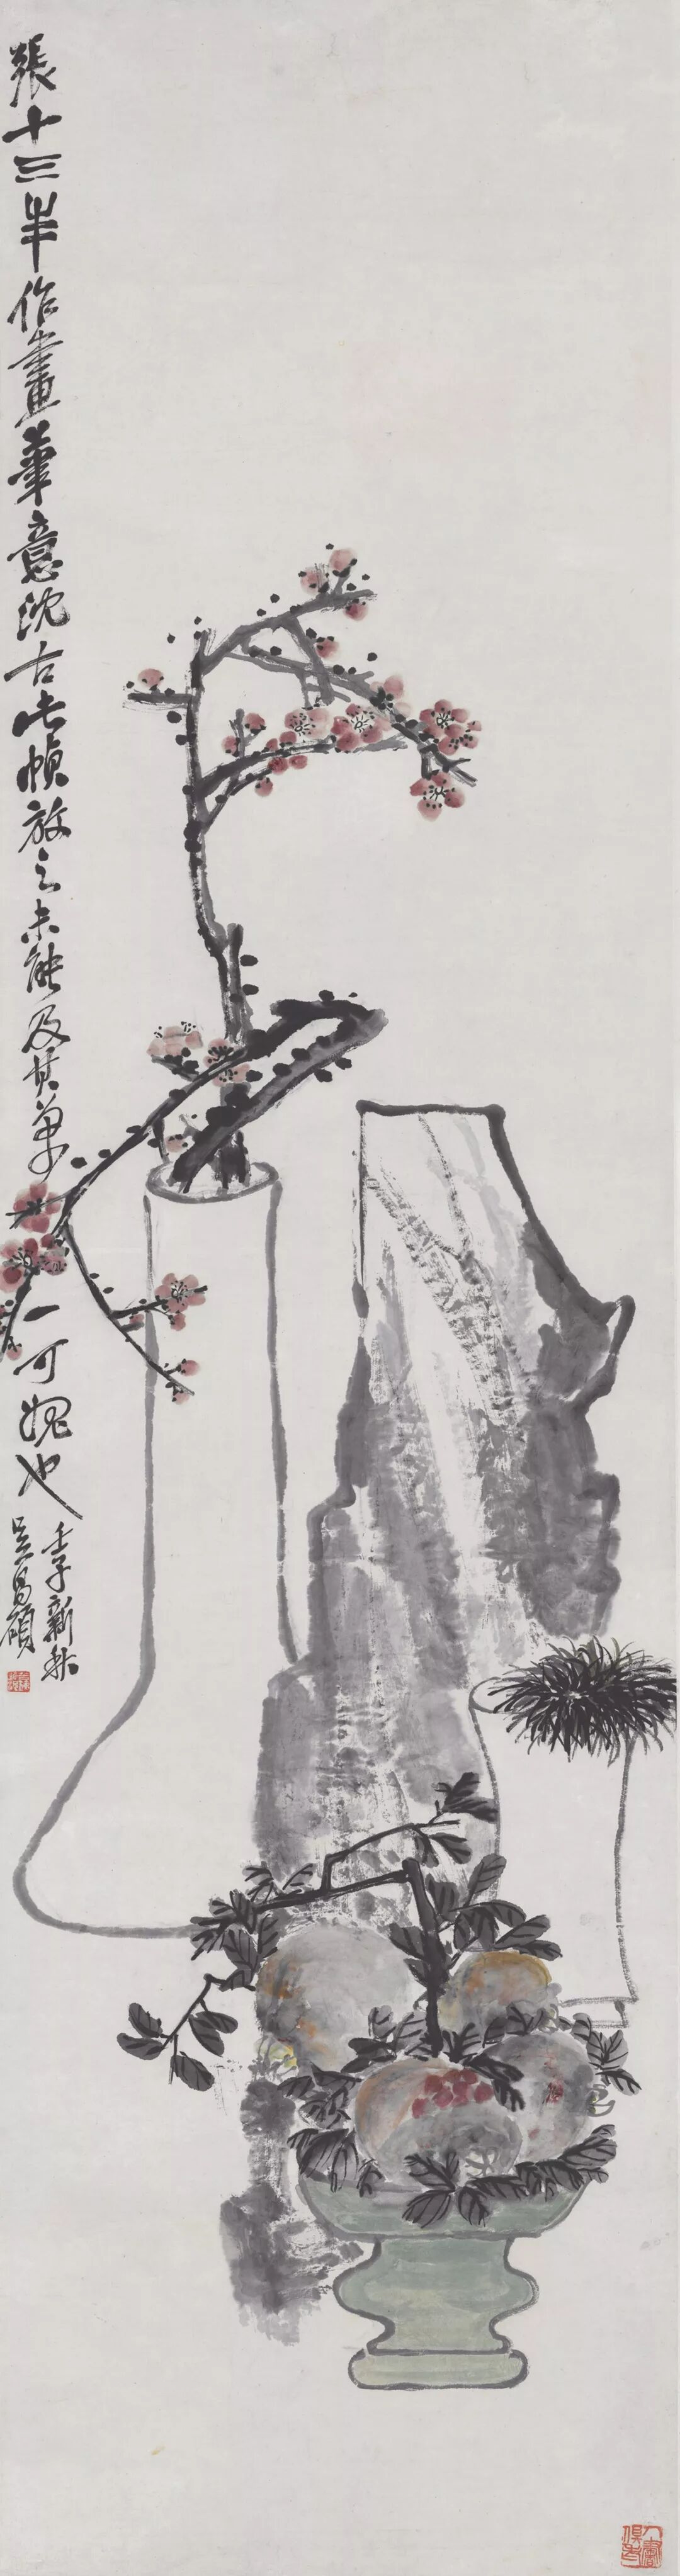 張十三峯作畫筆意沈古此幀放之未能及其萬一可媿也
壬子新秋
吳昌碩